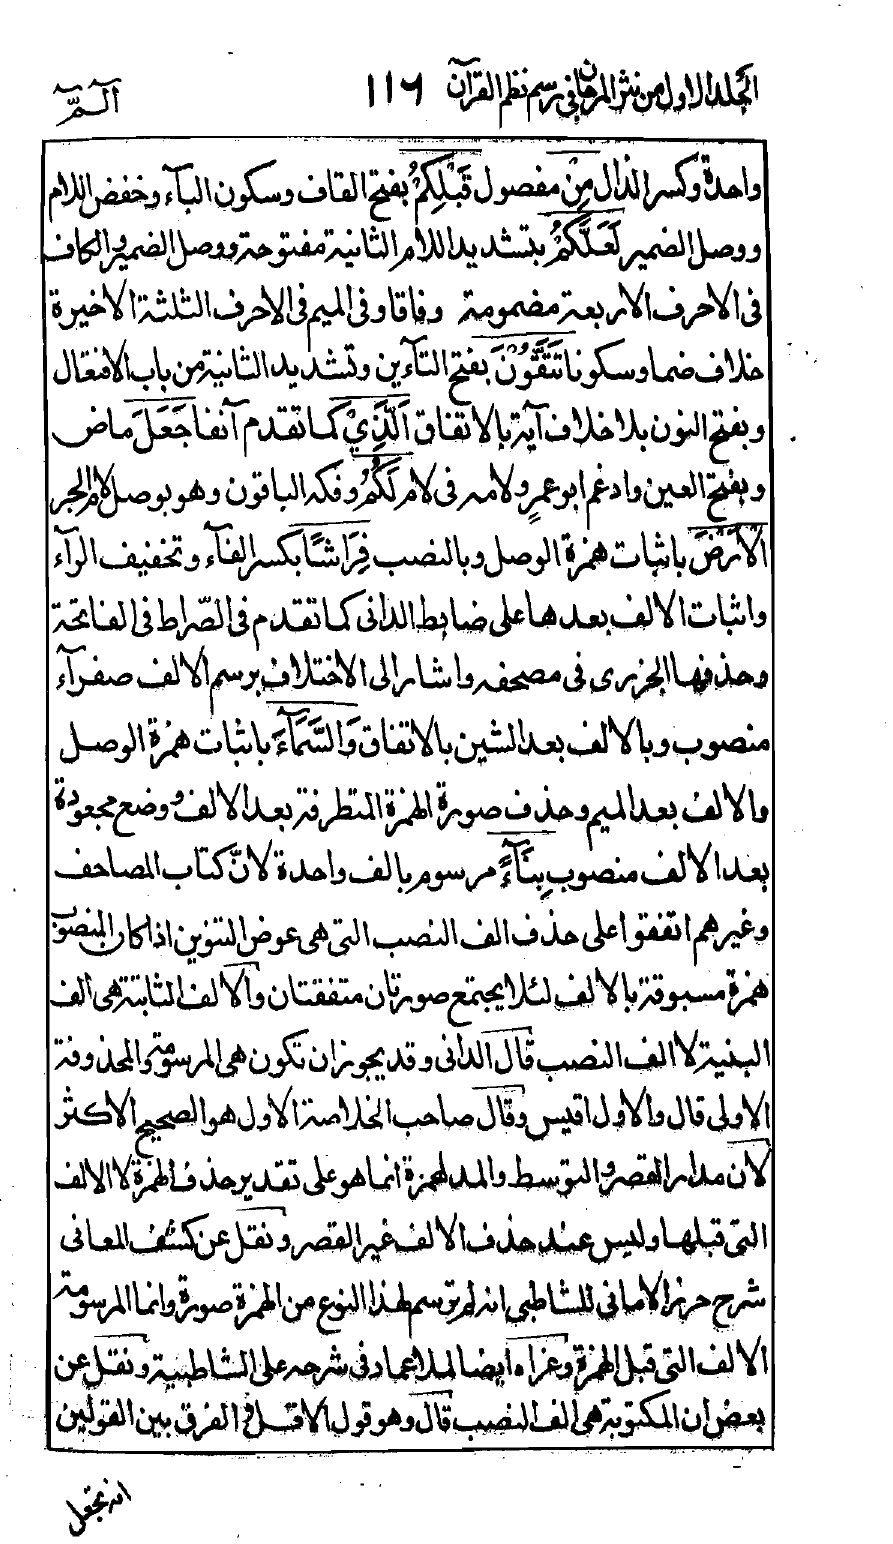 المجلد الاول من نثر المرجان فى رسم نظم القرآن ١١٦ آلـمّٓ
واحدة وكسر الذال مِنْ مفصول قَبْلِكُمْ بفتح القاف وسكون البآء وخفض اللام
ووصل الضمير لَعَلَّكُمْ بتشديد اللام الثانية مفتوحة ووصل الضمير والكاف
فى الاحرف الاربعة مضمومة وفاقا وفى الميم فى الاحرف الثلثة الاخيرة
خلاف ضما وسكونا تَتَّقُوْنَ بفتح التآءين وتشديد الثانية من باب الافتعال
وبفتح النون بلا خلاف آية بالاتفاق الَّذِيْ كما تقدم آنفا جَعَلَ ماض
وبفتح العين وادغم ابو عمرٍو لامه فى لام لَكُمُ وفكه الباقون وهو بوصل لام الجر
الْاَرْضَ باثبات همزة الوصل وبالنصب فِرَاشًا بكسر الفآء وتخفيف الرآء
واثبات الالف بعدها على ضابط الدانى كما تقدم فى الصّراط فى الفاتحة
وحذفها الجزرى فى مصحفه واشار الى الاختلاف برسم الالف صفرآء
منصوب وبالالف بعد الشين بالاتفاق وَالسَّمَآءَ باثبات همزة الوصل
والالف بعد الميم وحذف صورة الهمزة المتطرفة بعد الالف ووضع مجعودة
بعد الالف منصوب بِنَآءً مرسوم بالف واحدة لانّ كتاب المصاحف
وغيرهم اتفقوا على حذف الف النصب التى هى عوض التنوين اذا كان المنصوب
همزة مسبوقة بالالف لئلا يجتمع صورتان متفقتان والالف الثابتة هى الف
البنية لا الف النصب قال الدانى وقد يجوز ان تكون هى المرسومة والمحذوفة
الاولى قال والاول اقيس وقال صاحب الخلاصة الاول هو الصحيح الاكثر
لان مدار القصر والتوسط والمد لهمزة انما هو على تقدير حذف الهمزة لا الالف
التى قبلها وليس عند حذف الالف غير القصر ونقل عن كشف المعانى
شرح حرز الامانى للشاطبى انه لم ترسم لهذا النوع من الهمزة صورة وانما المرسومة
الالف التى قبل الهمزة وعزاه ايضا لملا عماد فى شرحه على الشاطبية ونقل عن
بعض ان المكتوبة هى الف النصب قال وهو قول الاقل فى الفرق بين القولين